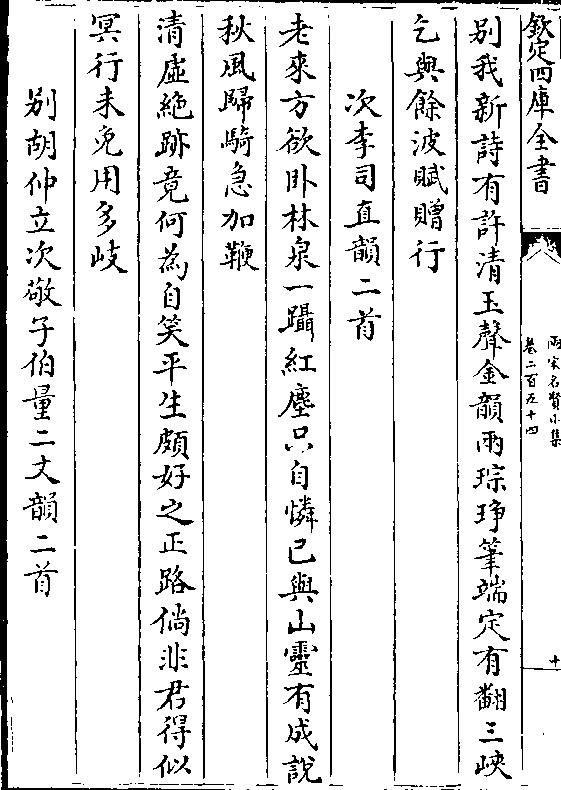 欽定四庫全書
兩宋名賢小集
卷二百五十四
十
別我新詩有許清玉聲金韻兩琮琤筆端定有翻三峽
乞與餘波賦贈行
次李司直韻二首
老來方欲卧林泉一躡紅塵只自憐已與山靈有成說
秋風歸騎急加鞭
清虛絶跡竟何為自笑平生頗好之正路倘非君得似
冥行未免用多岐
別胡仲立次敬子伯量二丈韻二首